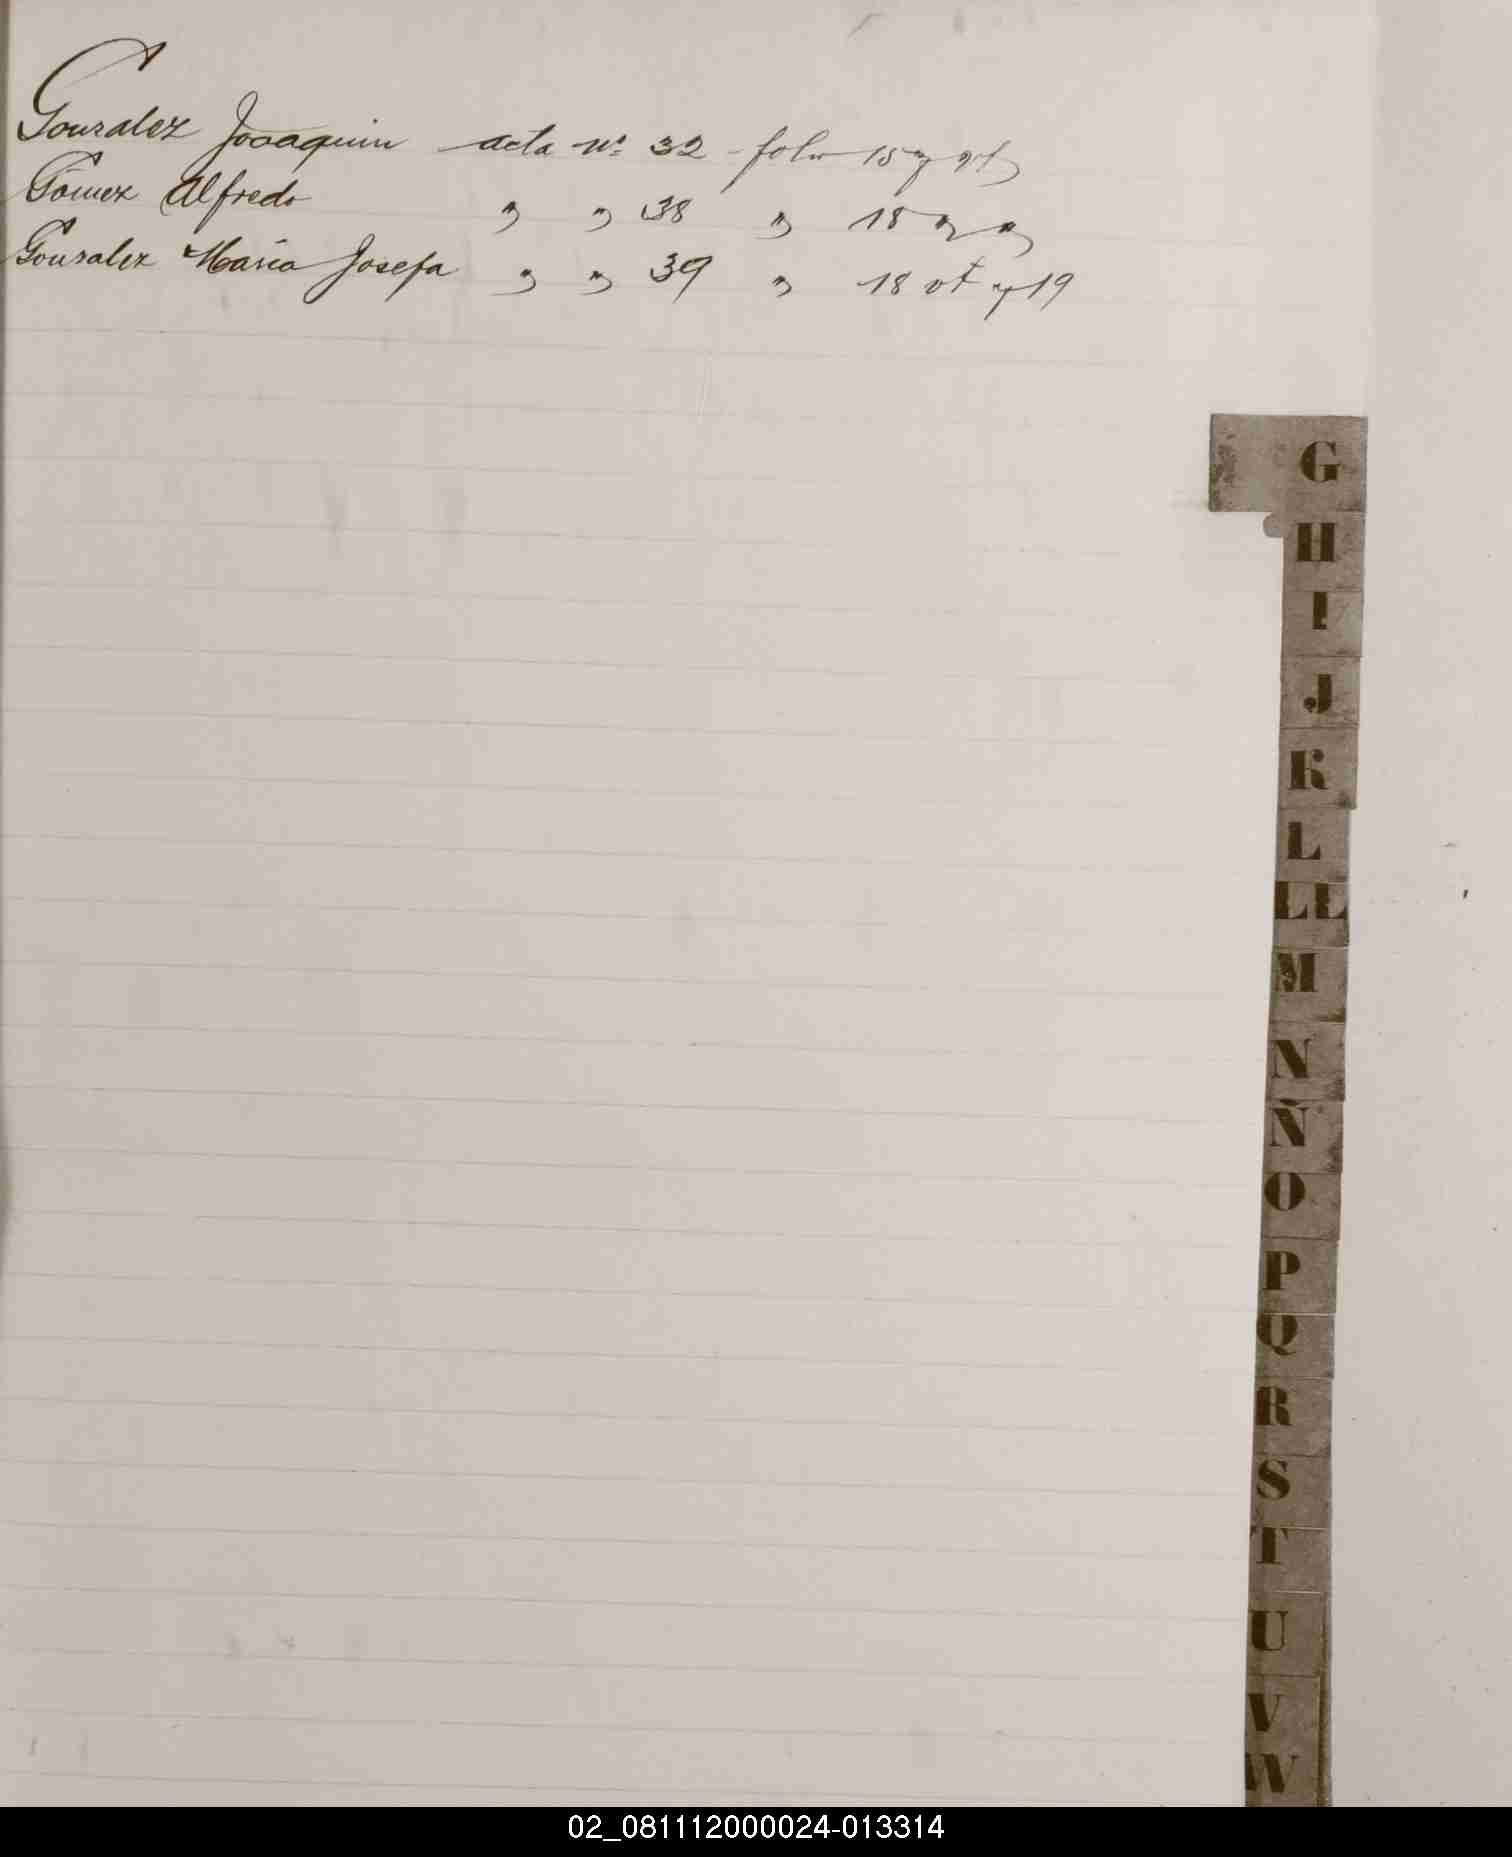 Gonzalez Joaaquin acta nº 32 - folio 15 y vt
Gomez Alfredo " " 38 " 18 " "
Gonzalez Maria Josefa " " 39 " 18 vt y 19
G
H
I
J
K
L
LL
M
N
Ñ
O
P
Q
R
S
T
U
V
W
02_081112000024-013314